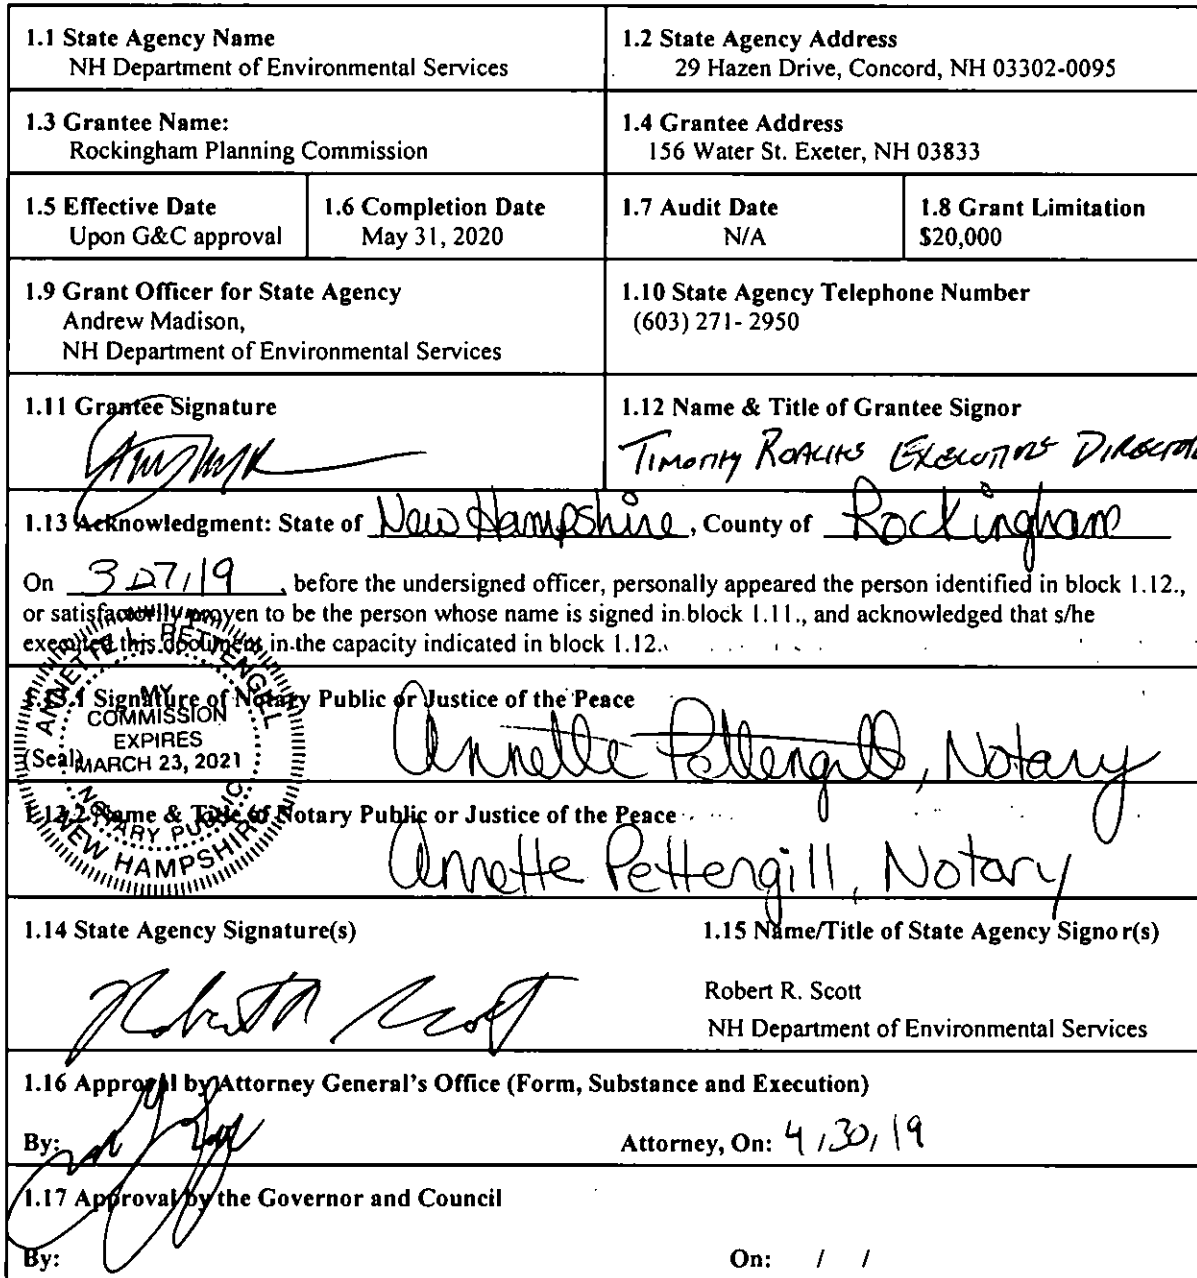 1.1 State Agency Name
NH Department of Environmental Services
1.2 State Agency Address
29 Hazen Drive, Concord, NH 03302-0095
1.3 Grantee Name:
Rockingham Planning Commission
1.4 Grantee Address
156 Water St. Exeter, NH 03833
1.5 Effective Date
Upon G&C approval
1.6 Completion Date
May 31, 2020
1.7 Audit Date
N/A
1.8 Grant Limitation
$20,000
1.9 Grant Officer for State Agency
Andrew Madison,
NH Department of Environmental Services
1.10 State Agency Telephone Number
(603) 271- 2950
1.11 Grantee Signature
1.12 Name & Title of Grantee Signor
Timothy Roache Executive Director
1.13 Acknowledgment: State of New Hampshire, County of Rockingham
On 3,27,19, before the undersigned officer, personally appeared the person identified in block 1.12.,
or satisfactorily proven to be the person whose name is signed in block 1.11., and acknowledged that s/he
executed this document in the capacity indicated in block 1.12.
1.13.1 Signature of Notary Public or Justice of the Peace
(Seal)
Annette Pettengill, Notary
ANNETTE L. PETTENGILL
MY
COMMISSION
EXPIRES
MARCH 23, 2021
NOTARY PUBLIC
NEW HAMPSHIRE
1.13.2 Name & Title of Notary Public or Justice of the Peace
Annette Pettengill, Notary
1.14 State Agency Signature(s)
Robert R Scott
1.15 Name/Title of State Agency Signor(s)
Robert R. Scott
NH Department of Environmental Services
1.16 Approval by Attorney General's Office (Form, Substance and Execution)
By:
Attorney, On: 4/30/19
1.17 Approval by the Governor and Council
By:
On: / /